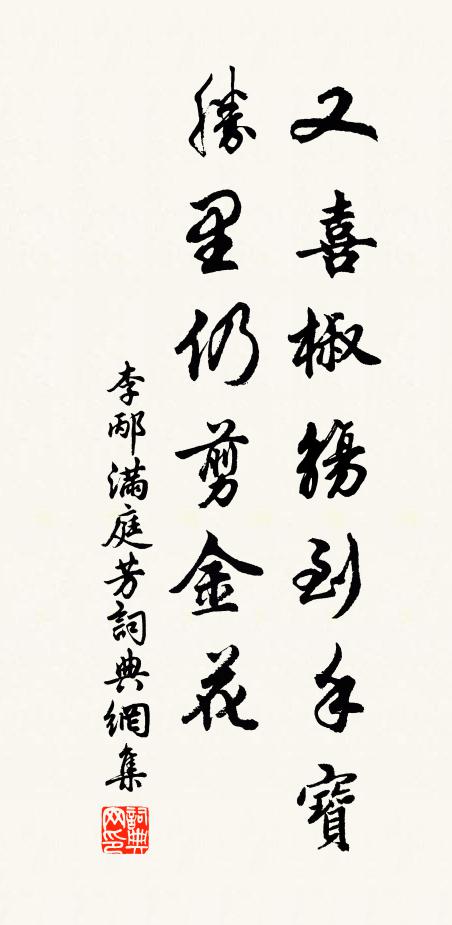 又喜椒觴到手寶
勝里仍剪金花
李邴滿庭芳詞典網集
詞典网印